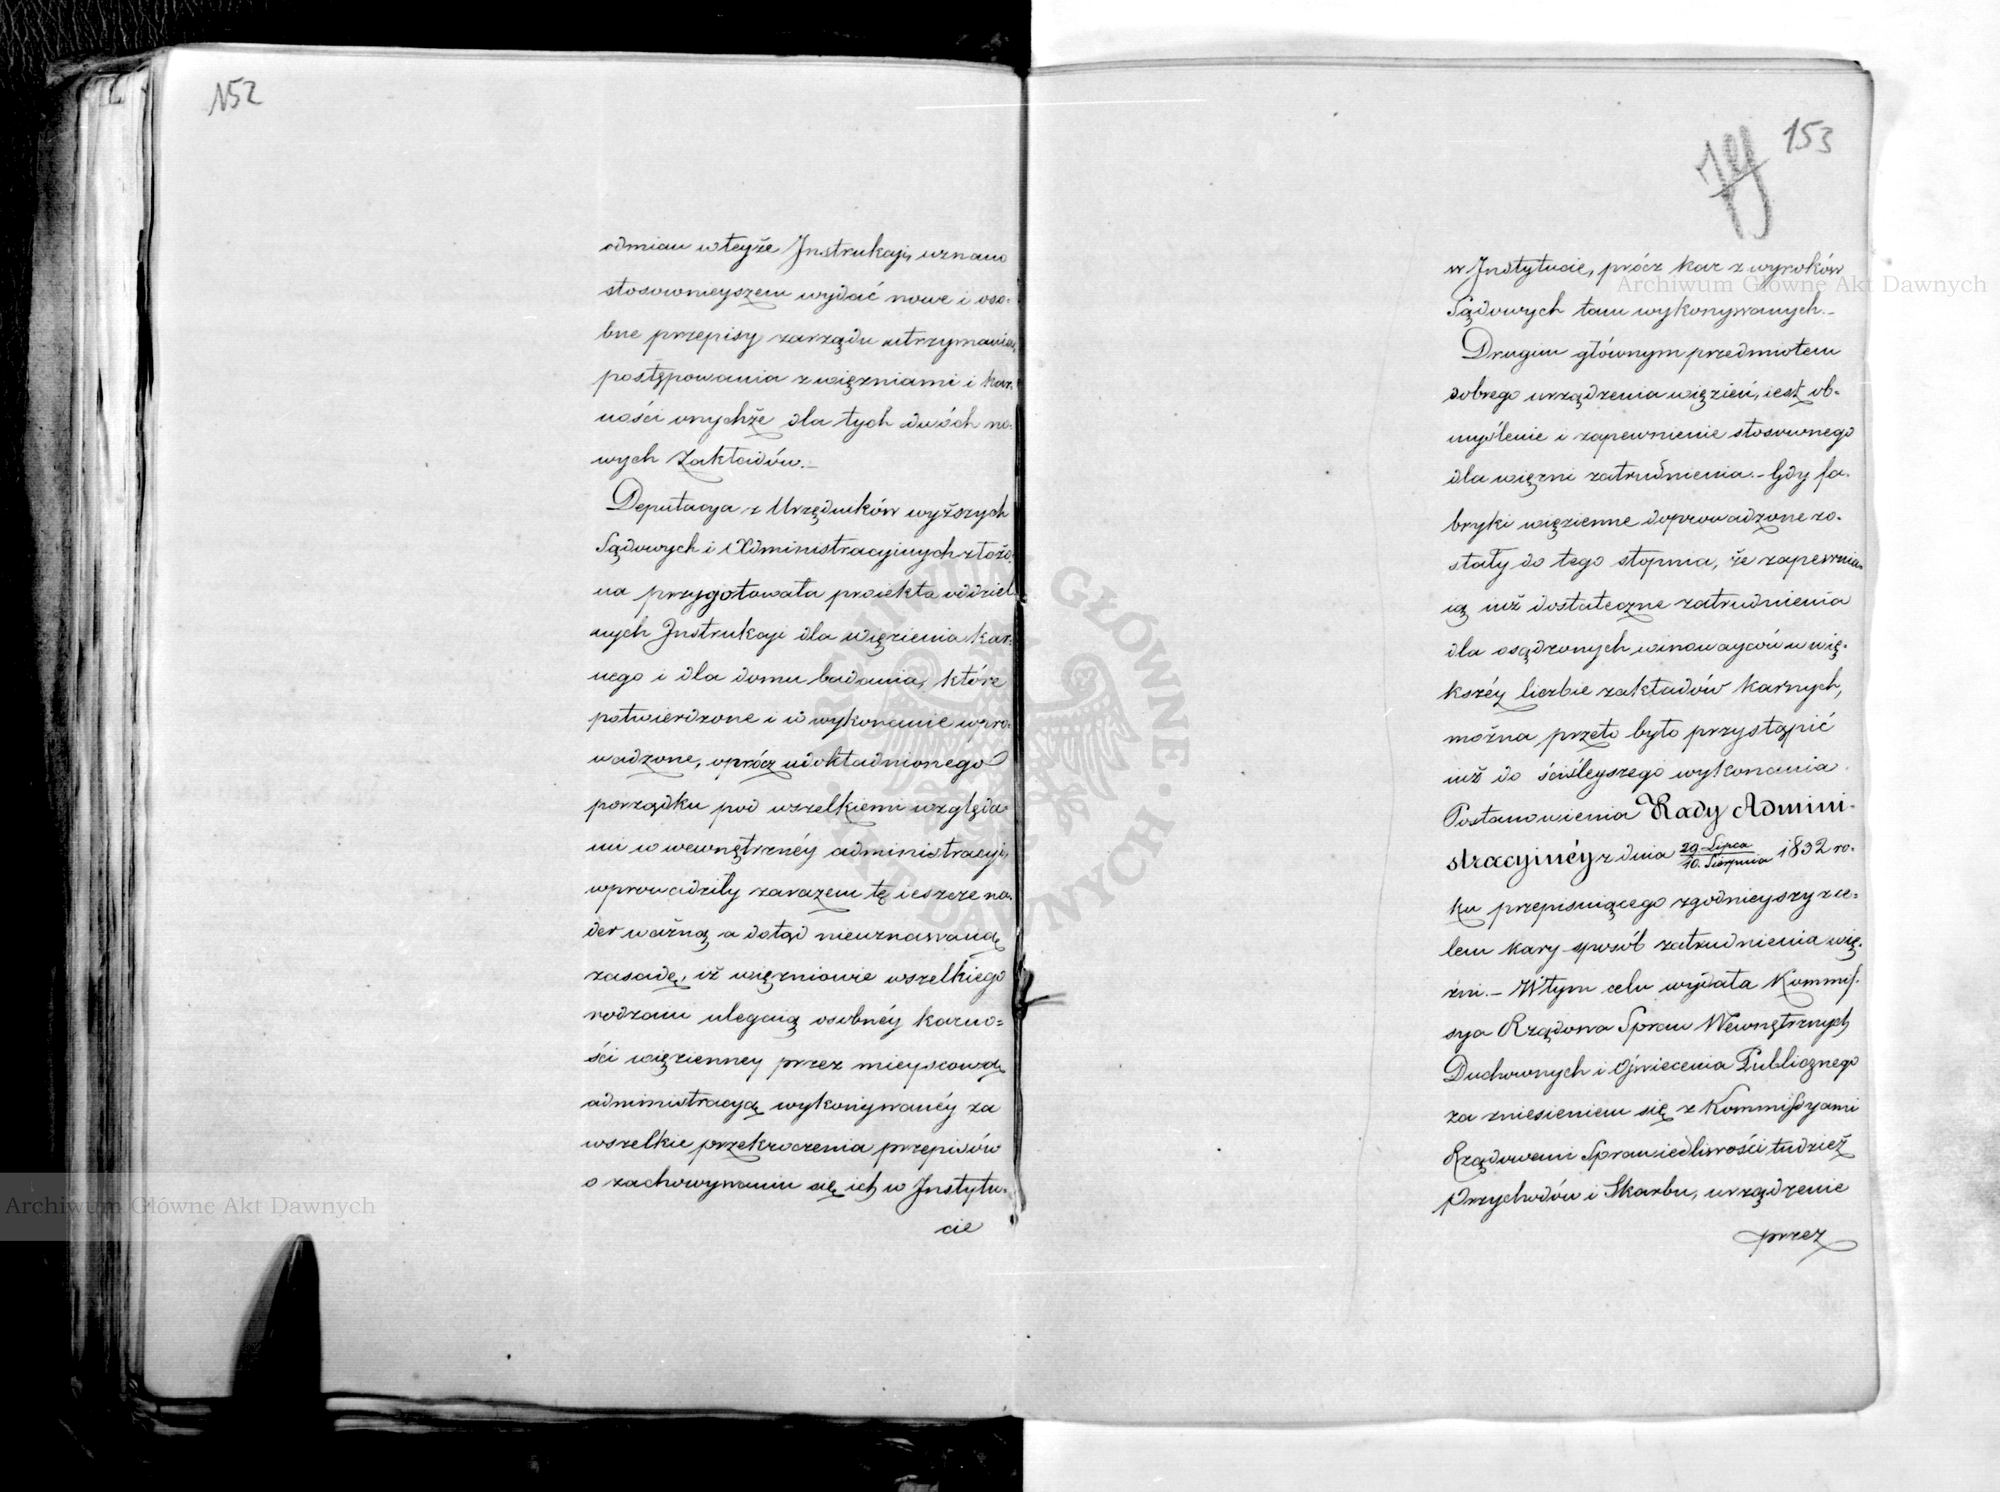 152
odmian w teyże Instrukcyi, uznano
stosownieyszem wydać nowe i oso-
bne przepisy zarządu utrzymania,
postępowania z więzniami i kar-
ności onychże dla tych dwóch no-
wych Zakładów.—
Deputacya z Urzędników wyższych
Sądowych i Administracyinych złożo-
na przygotowała proiekta oddziel-
nych Instrukcyi dla więzienia kar-
nego i dla domu badania, które
potwierdzone i w wykonanie wpro-
wadzone, oprócz udokładnionego
porządku pod wszelkiemi względa-
mi w wewnętrznéy administracyi,
wprowadziły zarazem tę ieszcze na-
der ważną a dotąd nieuznawaną
zasadę, iż więzniowie wszelkiego
rodzaiu ulegaią osobnéy karno-
ści więzienney przez mieyscową
administracyą wykonywanéy za
wszelkie przekroczenia przepisów
o zachowywaniu się ich w Instytu-
cie
153
w Instytucie, prócz kar z wyroków
Sądowych tam wykonywanych.—
Drugim głównym przedmiotem
dobrego urządzenia więzień, iest ob-
myślenie i zapewnienie stosownego
dla więzni zatrudnienia.— Gdy fa-
bryki więzienne doprowadzone zo-
stały do tego stopnia, że zapewnia-
ią iuż dostateczne zatrudnienia
dla osądzonych winowayców w wię-
kszéy liczbie zakładów karnych,
można przeto było przystąpić
iuż do ściśleyszego wykonania
Postanowienia Rady Admini-
stracyinéy z dnia 29 Lipca / 10. Sierpnia 1832 ro-
ku przepisuiącego zgodnieyszy z ce-
lem kary sposób zatrudnienia wię-
zni.— W tym celu wydała Kommis-
sya Rządowa Spraw Wewnętrznych
Duchownych i Oświecenia Publicznego
za zniesieniem się z Kommissyami
Rządowemi Sprawiedliwości tudzież
Przychodów i Skarbu, urządzenie
przez
Archiwum Główne Akt Dawnych
Archiwum Główne Akt Dawnych
ARCHIWUM GŁÓWNE AKT DAWNYCH